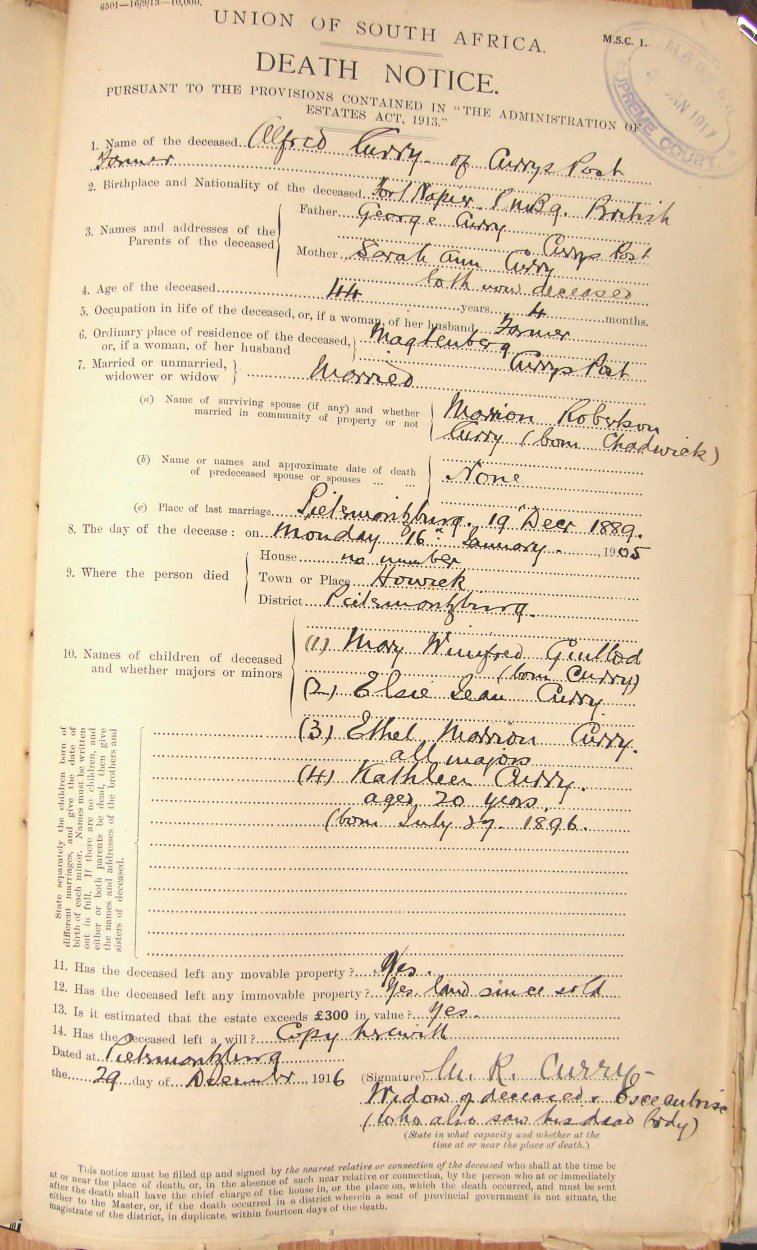 6501—16/9/13—10,000.
UNION OF SOUTH AFRICA.
M.S.C. 1.
DEATH NOTICE.
PURSUANT TO THE PROVISIONS CONTAINED IN "THE ADMINISTRATION OF
ESTATES ACT, 1913."
MASTER
JAN 1917
SUPREME COURT
1. Name of the deceased Alfred Curry of Currys Post
Farmer
2. Birthplace and Nationality of the deceased Fort Napier PmBg. British
3. Names and addresses of the Parents of the deceased
Father George Curry
Currys Post
Mother Sarah Ann Curry
both now deceased
4. Age of the deceased 44 years 4 months.
5. Occupation in life of the deceased, or, if a woman, of her husband Farmer
6. Ordinary place of residence of the deceased, or, if a woman, of her husband
Magtenberg
Currys Post
7. Married or unmarried, widower or widow
Married
(a) Name of surviving spouse (if any) and whether married in community of property or not
Marrion Robertson
Curry (born Chadwick)
(b) Name or names and approximate date of death of predeceased spouse or spouses ... ...
None
(c) Place of last marriage Pietermaritzburg. 19 Decr 1889.
8. The day of the decease: on Monday 16th January 1905
9. Where the person died
House no number
Town or Place Howick
District Pietermaritzburg
10. Names of children of deceased and whether majors or minors
(1) Mary Winifred
(born Curry)
(2) Elsie Jean Curry
(3) Ethel Marrion Curry.
all majors
(4) Kathleen Curry.
aged 20 years
(born July 29. 1896.
State separately the children born of
different marriages, and give the date of
birth of each minor. Names must be written
out in full. If there are no children, and
either or both parents be dead, then give
the names and addresses of the brothers and
sisters of deceased.
11. Has the deceased left any movable property? Yes.
12. Has the deceased left any immovable property? Yes. land since sold
13. Is it estimated that the estate exceeds £300 in value? Yes.
14. Has the deceased left a will? Copy herewith
Dated at Pietermaritzburg
the 29 day of December 1916
(Signature) M. R. Curry
Widow of deceased &
(who also saw his dead body)
(State in what capacity and whether at the
time at or near the place of death.)
This notice must be filled up and signed by the nearest relative or connection of the deceased who shall at the time be
at or near the place of death, or, in the absence of such near relative or connection, by the person who at or immediately
after the death shall have the chief charge of the house in, or the place on, which the death occurred, and must be sent
either to the Master, or, if the death occurred in a district wherein a seat of provincial government is not situate, the
magistrate of the district, in duplicate, within fourteen days of the death.